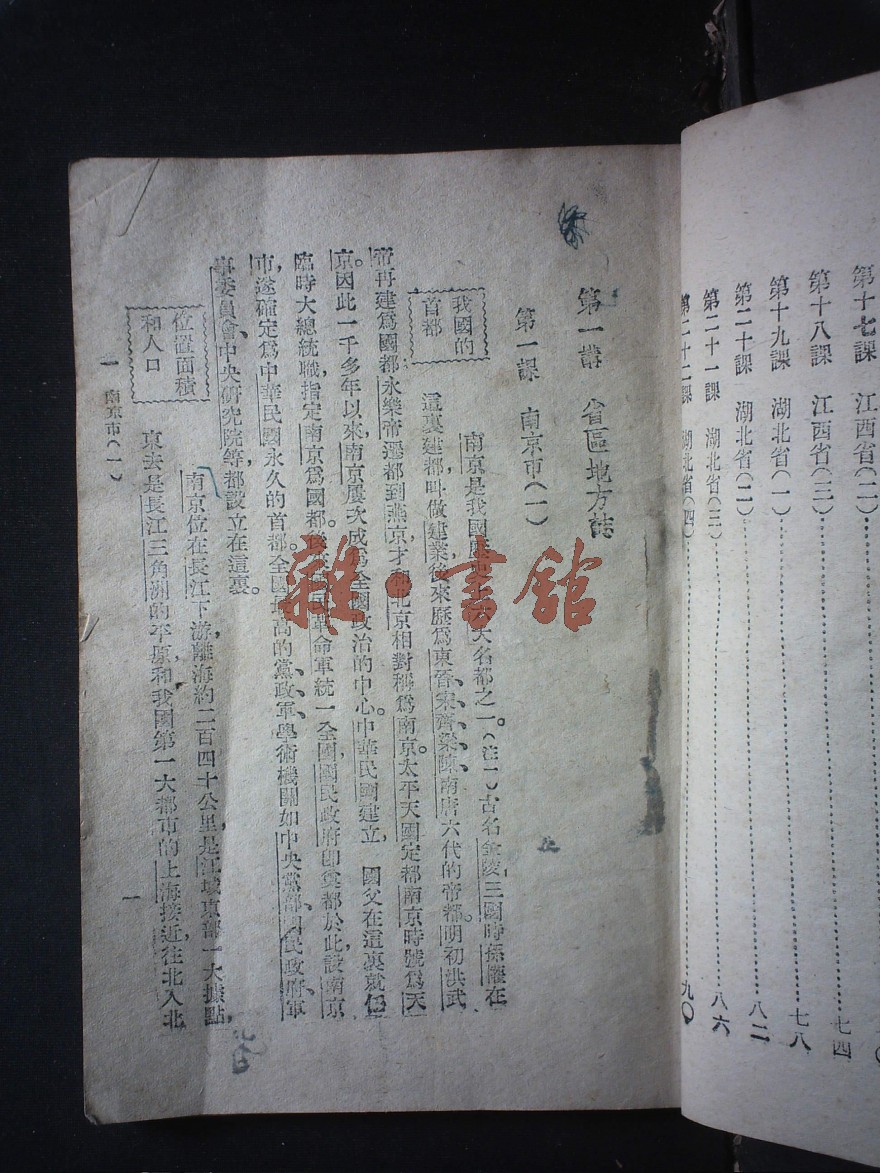 第十七課　江西省(二)
第十八課　江西省(三)……七四
第十九課　湖北省(一)……七八
第二十課　湖北省(二)……八二
第二十一課　湖北省(三)……八六
第二十二課　湖北省(四)……九〇
第一講　省區地方誌
第一課　南京市(一)
我國的
首都
南京是我國歷史上六大名都之一。(注一)古名金陵,三國時孫權在
這裏建都,叫做建業,後來歷爲東晉、宋、齊、梁、陳、南唐六代的帝都。明初洪武
帝再建爲國都,永樂帝遷都到燕京,才和北京相對稱爲南京。太平天國定都南京時號爲天
京。因此一千多年以來,南京屢次成爲全國政治的中心。中華民國建立,　國父在這裏就任
臨時大總統職,指定南京爲國都。後國民革命軍統一全國,國民政府即奠都於此,設南京
市,遂確定爲中華民國永久的首都。全國最高的黨、政、軍、學術機關,如中央黨部、國民政府、軍
事委員會、中央研究院等都設立在這裏。
位置面積
和人口
南京位在長江下游,離海約二百四十公里,是江域東部一大據點,
東去是長江三角洲的平原,和我國第一大都市的上海接近,往北入北
一　南京市(一)
一
雜·書館